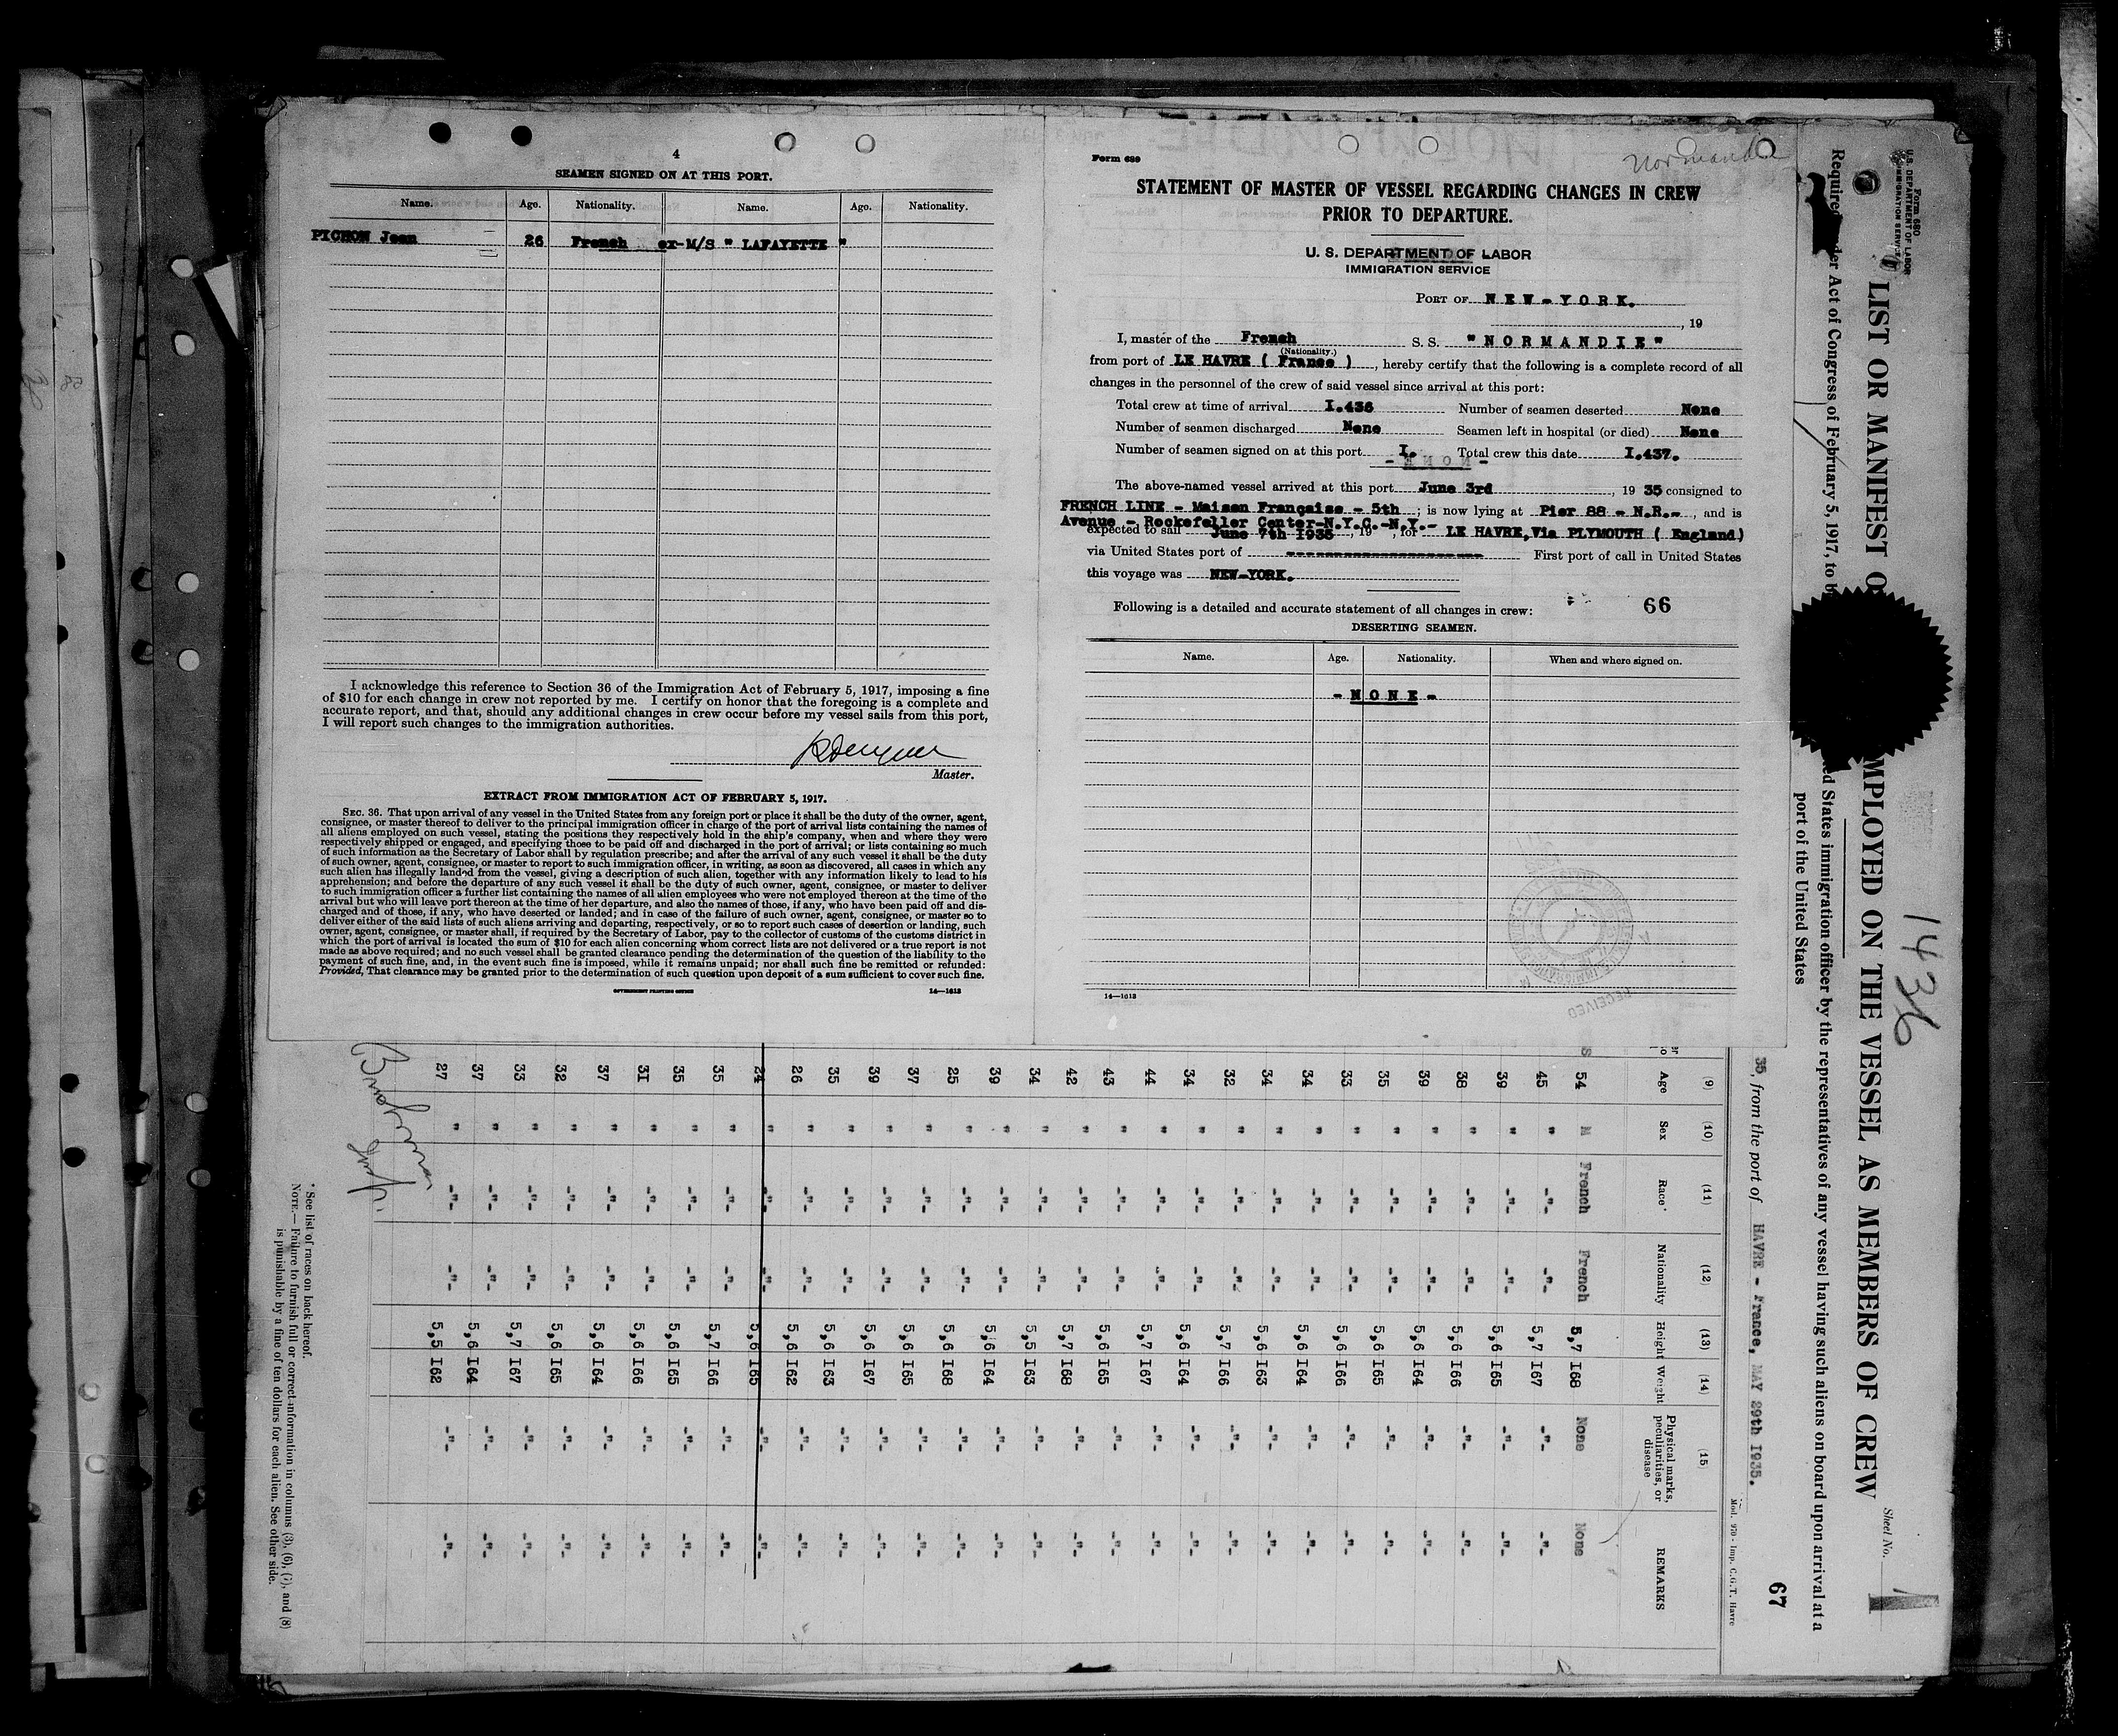 4
SEAMEN SIGNED ON AT THIS PORT.
Name. Age. Nationality. Name. Age. Nationality.
PICHON Jean 26 French ex-M/S " LAFAYETTE "
I acknowledge this reference to Section 36 of the Immigration Act of February 5, 1917, imposing a fine
of $10 for each change in crew not reported by me. I certify on honor that the foregoing is a complete and
accurate report, and that, should any additional changes in crew occur before my vessel sails from this port,
I will report such changes to the immigration authorities.
Master.
EXTRACT FROM IMMIGRATION ACT OF FEBRUARY 5, 1917.
SEC. 36. That upon arrival of any vessel in the United States from any foreign port or place it shall be the duty of the owner, agent,
consignee, or master thereof to deliver to the principal immigration officer in charge of the port of arrival lists containing the names of
all aliens employed on such vessel, stating the positions they respectively hold in the ship's company, when and where they were
respectively shipped or engaged, and specifying those to be paid off and discharged in the port of arrival; or lists containing so much
of such information as the Secretary of Labor shall by regulation prescribe; and after the arrival of any such vessel it shall be the duty
of such owner, agent, consignee, or master to report to such immigration officer, in writing, as soon as discovered, all cases in which any
such alien has illegally landed from the vessel, giving a description of such alien, together with any information likely to lead to his
apprehension; and before the departure of any such vessel it shall be the duty of such owner, agent, consignee, or master to deliver
to such immigration officer a further list containing the names of all alien employees who were not employed thereon at the time of the
arrival but who will leave port thereon at the time of her departure, and also the names of those, if any, who have been paid off and dis-
charged and of those, if any, who have deserted or landed; and in case of the failure of such owner, agent, consignee, or master so to
deliver either of the said lists of such aliens arriving and departing, respectively, or so to report such cases of desertion or landing, such
owner, agent, consignee, or master, shall, if required by the Secretary of Labor, pay to the collector of customs of the customs district in
which the port of arrival is located the sum of $10 for each alien concerning whom correct lists are not delivered or a true report is not
made as above required; and no such vessel shall be granted clearance pending the determination of the question of the liability to the
payment of such fine, and, in the event such fine is imposed, while it remains unpaid; nor shall such fine be remitted or refunded:
Provided, That clearance may be granted prior to the determination of such question upon deposit of a sum sufficient to cover such fine.
GOVERNMENT PRINTING OFFICE 14—1613
Form 689
Normandie
STATEMENT OF MASTER OF VESSEL REGARDING CHANGES IN CREW
PRIOR TO DEPARTURE.
U. S. DEPARTMENT OF LABOR
IMMIGRATION SERVICE
PORT OF NEW-YORK.
, 19
I, master of the French S. S. "NORMANDIE"
(Nationality.)
from port of LE HAVRE ( France ) , hereby certify that the following is a complete record of all
changes in the personnel of the crew of said vessel since arrival at this port:
Total crew at time of arrival I.436 Number of seamen deserted None
Number of seamen discharged None Seamen left in hospital (or died) None
Number of seamen signed on at this port I. Total crew this date I.437.
The above-named vessel arrived at this port June 3rd , 19 35 consigned to
FRENCH LINE - Maison Française - 5th ; is now lying at Pier 88 - N.R.- , and is
Avenue - Rockefeller Center-N.Y.C.-N.Y.-
expected to sail June 7th 1935 , 19 , for LE HAVRE,Via PLYMOUTH ( England)
via United States port of -------------------- First port of call in United States
this voyage was NEW-YORK.
Following is a detailed and accurate statement of all changes in crew: 66
DESERTING SEAMEN.
Name. Age. Nationality. When and where signed on.
- NONE -
14—1613
RECEIVED
Form 680
U.S. DEPARTMENT OF LABOR
IMMIGRATION SERVICE
LIST OR MANIFEST O MPLOYED ON THE VESSEL AS MEMBERS OF CREW
Sheet No. 1
1436
Required der Act of Congress of February 5, 1917, to b ed States immigration officer by the representatives of any vessel having such aliens on board upon arrival at a
port of the United States
67
35, from the port of HAVRE - France, MAY 29th I935.
Mod. 970 - Imp. C.G.T. Havre
(9) (10) (11) (12) (13) (14) (15)
Age Sex Race* Nationality Height Weight Physical marks, peculiarities, or disease REMARKS
54 M French French 5,7 I68 None None
45 " -"- -"- 5,7 I67 -"- -"-
39 " -"- -"- 5,6 I65 -"- -"-
38 " -"- -"- 5,6 I66 -"- -"-
39 " -"- -"- 5,6 I64 -"- -"-
35 " -"- -"- 5,6 I65 -"- -"-
33 " -"- -"- 5,6 I66 -"- -"-
34 " -"- -"- 5,6 I64 -"- -"-
34 " -"- -"- 5,6 I63 -"- -"-
32 " -"- -"- 5,7 I66 -"- -"-
34 " -"- -"- 5,6 I64 -"- -"-
44 " -"- -"- 5,7 I67 -"- -"-
43 " -"- -"- 5,6 I65 -"- -"-
42 " -"- -"- 5,7 I68 -"- -"-
34 " -"- -"- 5,5 I63 -"- -"-
39 " -"- -"- 5,6 I64 -"- -"-
25 " -"- -"- 5,6 I68 -"- -"-
37 " -"- -"- 5,6 I65 -"- -"-
39 " -"- -"- 5,6 I67 -"- -"-
35 " -"- -"- 5,6 I63 -"- -"-
26 " -"- -"- 5,6 I62 -"- -"-
24 " -"- -"- 5,6 I65 -"- -"-
35 " -"- -"- 5,7 I66 -"- -"-
35 " -"- -"- 5,6 I65 -"- -"-
3I " -"- -"- 5,6 I66 -"- -"-
37 " -"- -"- 5,6 I64 -"- -"-
32 " -"- -"- 5,6 I65 -"- -"-
33 " -"- -"- 5,7 I67 -"- -"-
37 " -"- -"- 5,6 I64 -"- -"-
27 " -"- -"- 5,5 I62 -"- -"-
* See list of races on back hereof.
NOTE.—Failure to furnish full or correct information in columns (3), (6), (7), and (8)
is punishable by a fine of ten dollars for each alien. See other side.